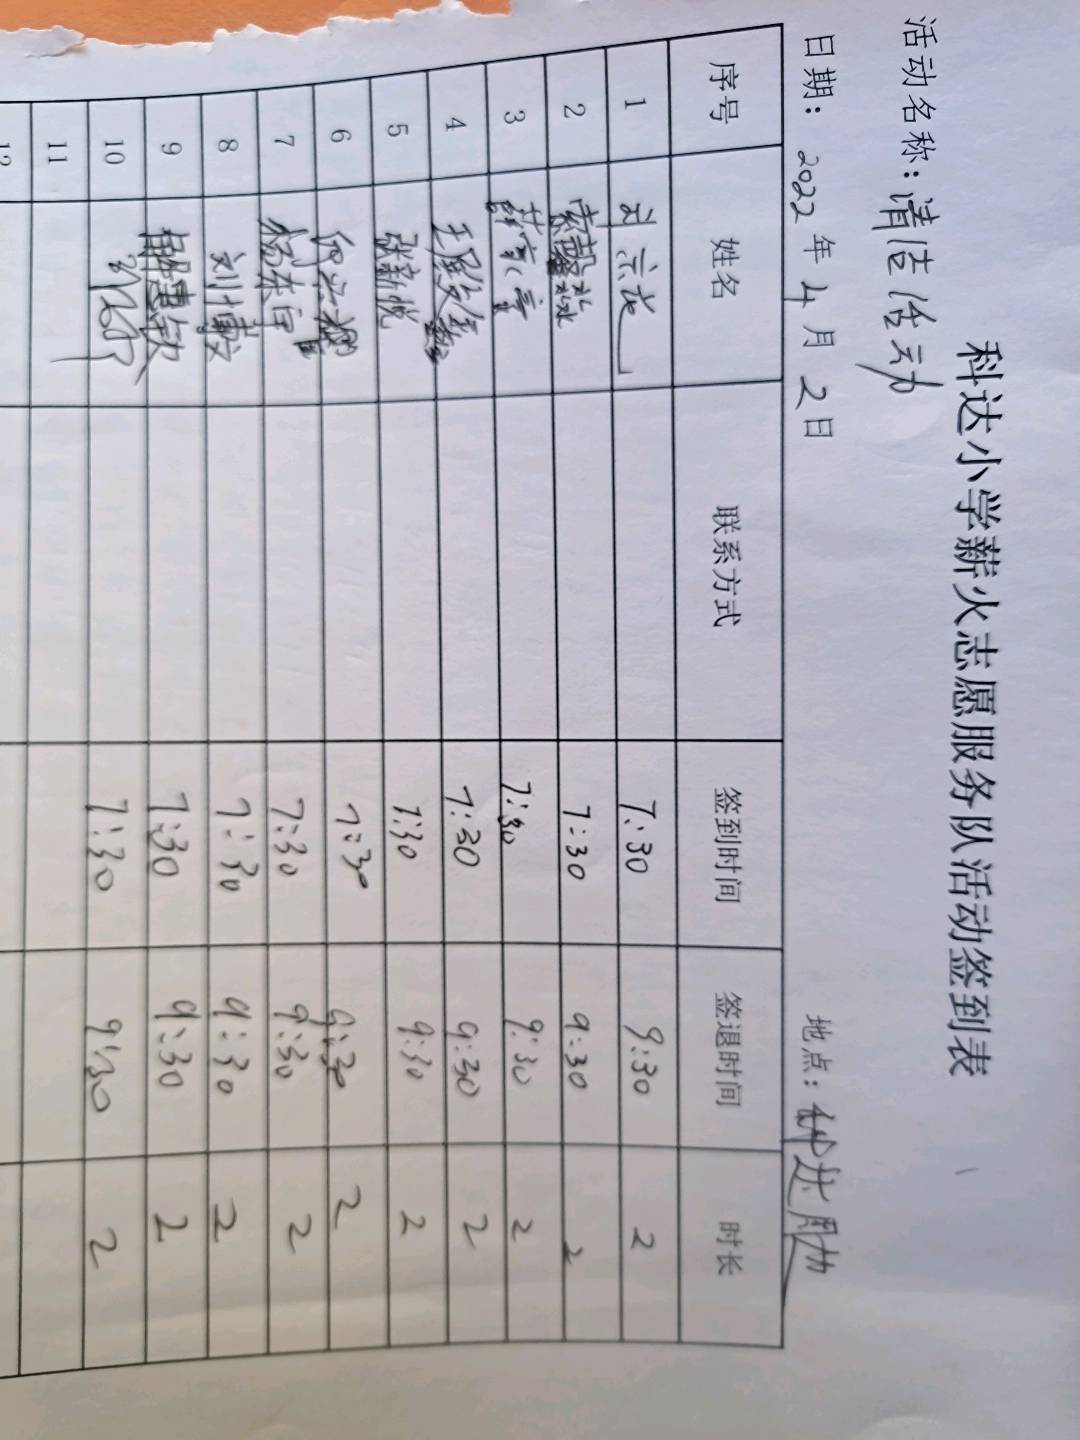 科达小学薪火志愿服务队活动签到表
活动名称：清洁活动
日期：2022年4月2日 地点：科达周边
序号 姓名 联系方式 签到时间 签退时间 时长
1 7:30 9:30 2
2 7:30 9:30 2
3 7:30 9:30 2
4 7:30 9:30 2
5 张新悦 7:30 9:30 2
6 7:30 9:30 2
7 7:30 9:30 2
8 刘博文 7:30 9:30 2
9 7:30 9:30 2
10 7:30 9:30 2
11
12